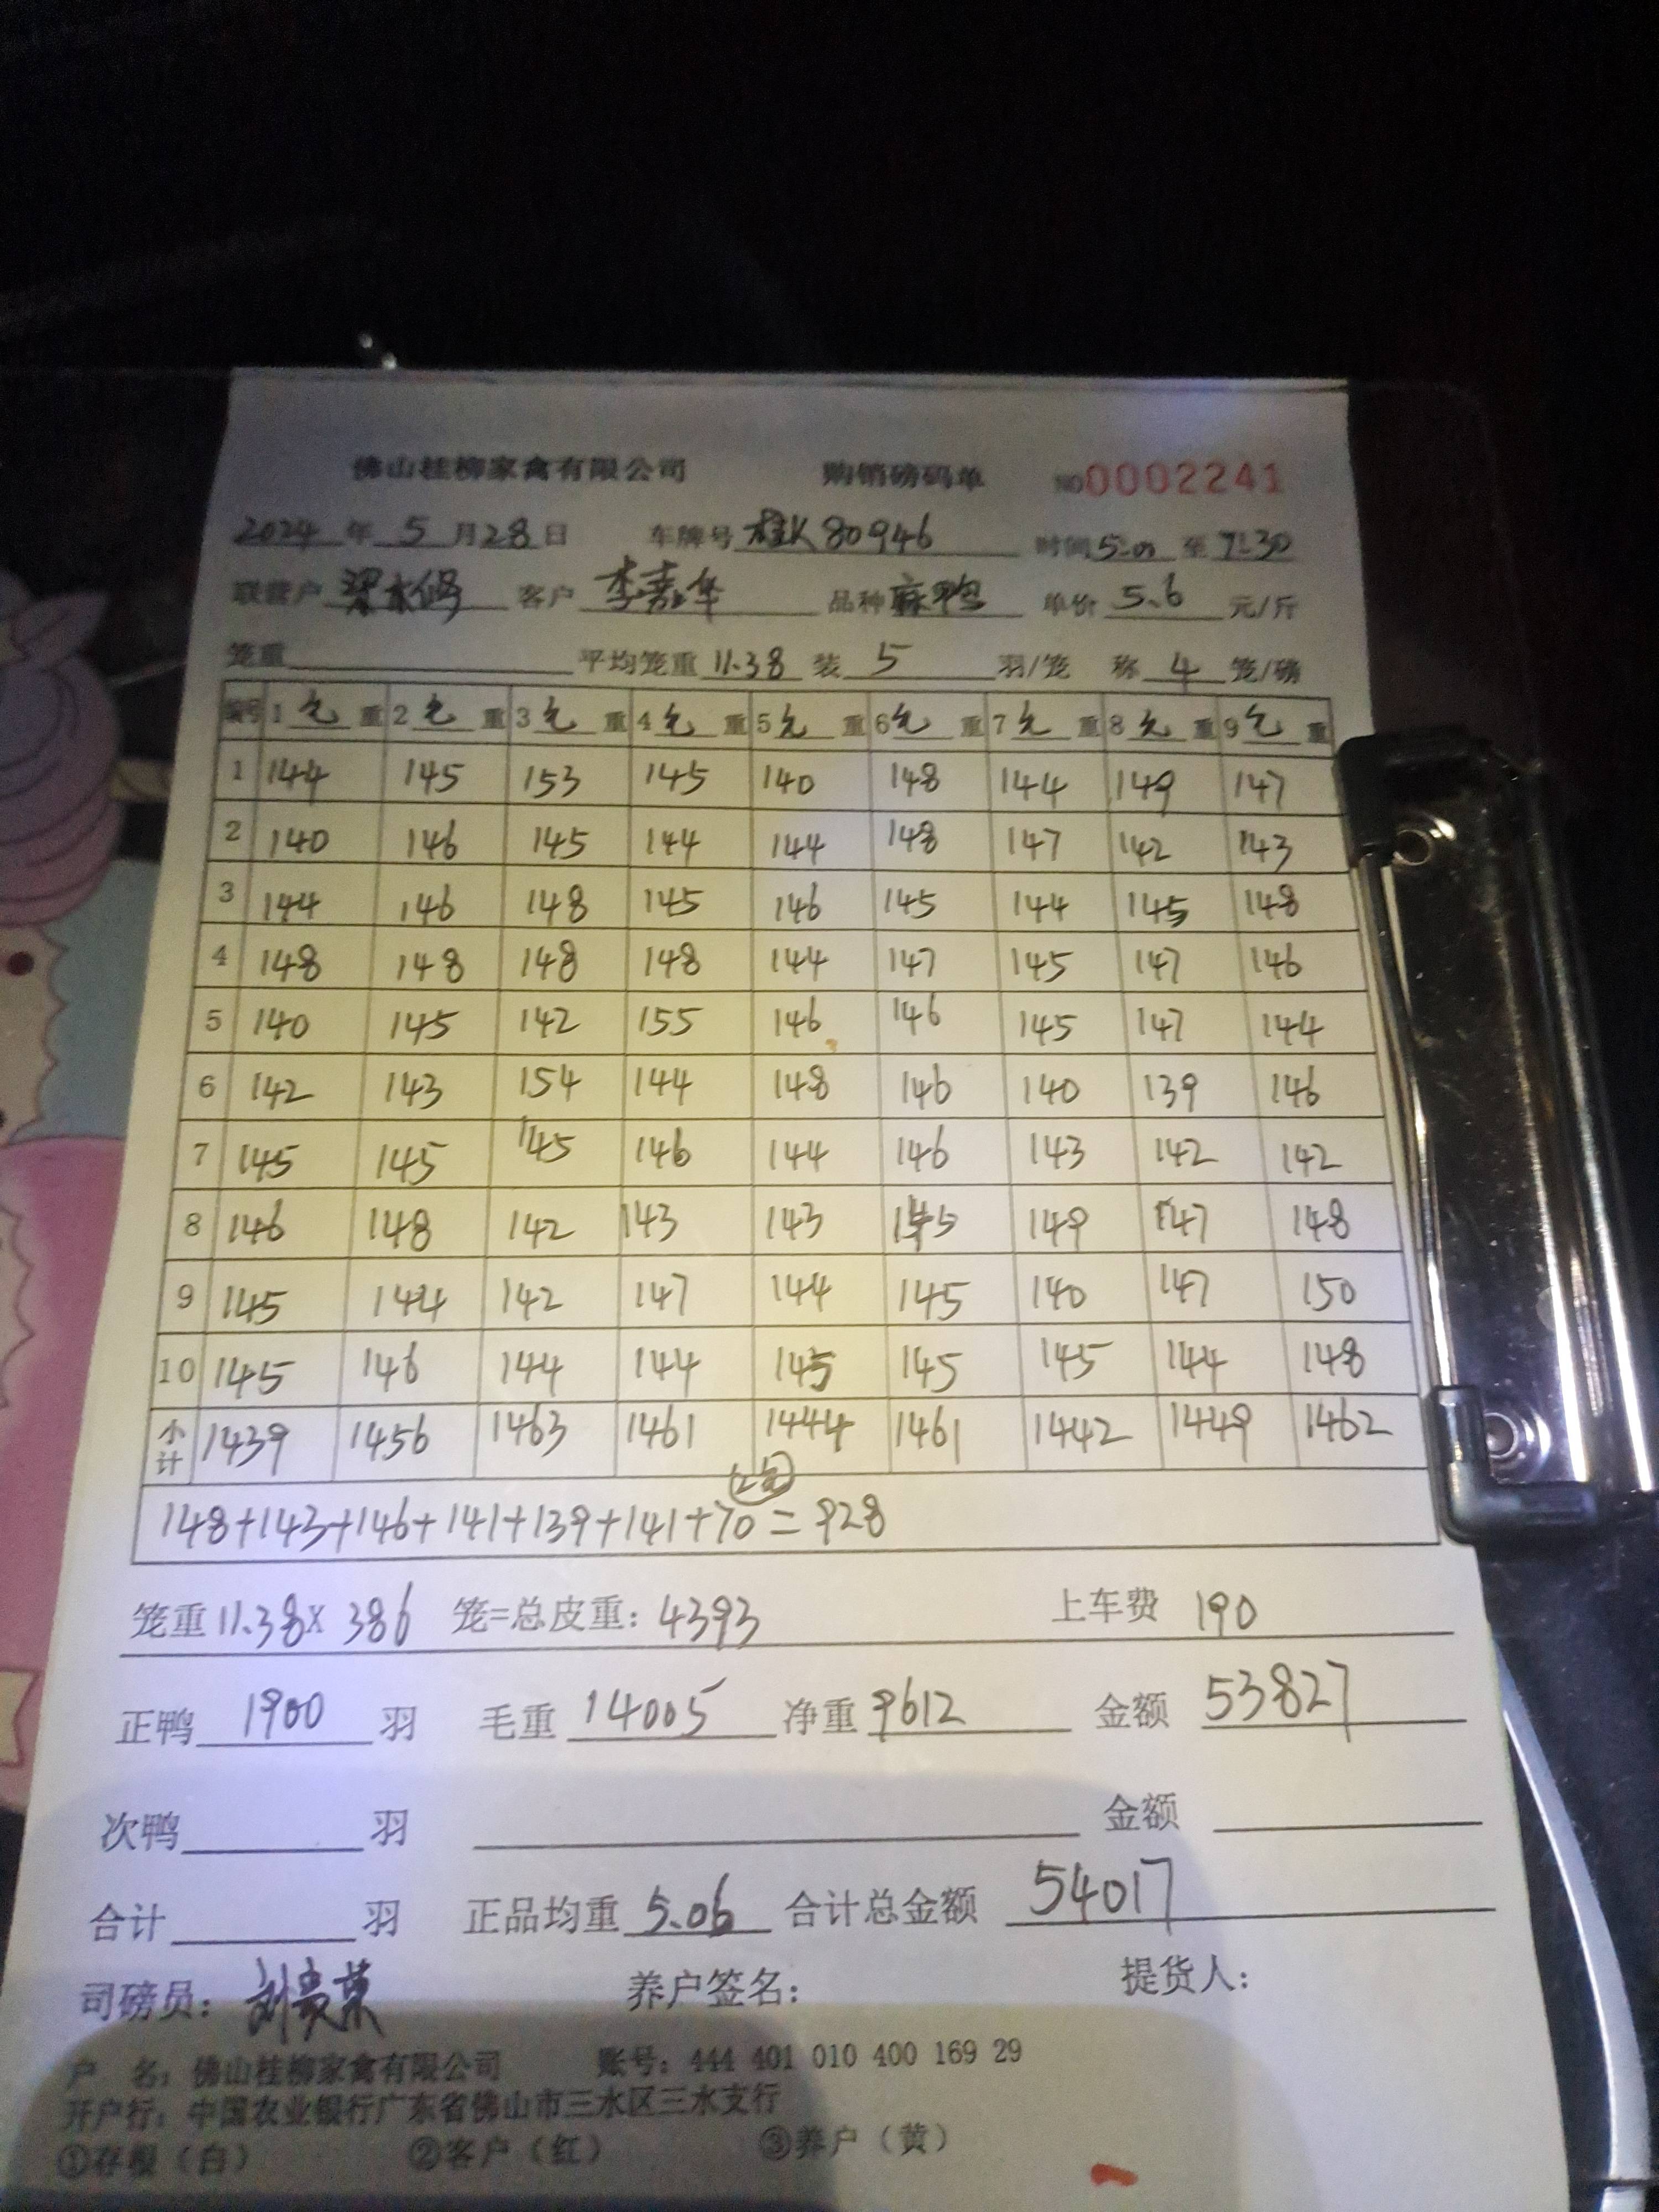 佛山桂柳家禽有限公司 购销磅码单 NO 0002241
2024 年 5 月 28 日 车牌号 桂K80946 时间 5:00 至 7:30
联营户 客户 李嘉华 品种 麻鸭 单价 5.6 元/斤
笼重 平均笼重 11.38 装 5 羽/笼 称 4 笼/磅
编号 1 毛 重 2 毛 重 3 毛 重 4 毛 重 5 毛 重 6 毛 重 7 毛 重 8 毛 重 9 毛 重
1 144 145 153 145 140 148 144 149 147
2 140 146 145 144 144 148 147 142 143
3 144 146 148 145 146 145 144 145 148
4 148 148 148 148 144 147 145 147 146
5 140 145 142 155 146 146 145 147 144
6 142 143 154 144 148 146 140 139 146
7 145 145 145 146 144 146 143 142 142
8 146 148 142 143 143 145 149 147 148
9 145 144 142 147 144 145 140 147 150
10 145 146 144 144 145 145 145 144 148
小计 1439 1456 1463 1461 1444 1461 1442 1449 1462
148+143+146+141+139+141+70=928
笼重 11.38× 386 笼=总皮重: 4393 上车费 190
正鸭 1900 羽 毛重 14005 净重 9612 金额 53827
次鸭 羽 金额
合计 羽 正品均重 5.06 合计总金额 54017
司磅员: 刘贵荣 养户签名: 提货人:
户 名: 佛山桂柳家禽有限公司 账号: 444 401 010 400 169 29
开户行: 中国农业银行广东省佛山市三水区三水支行
①存根（白） ②客户（红） ③养户（黄）